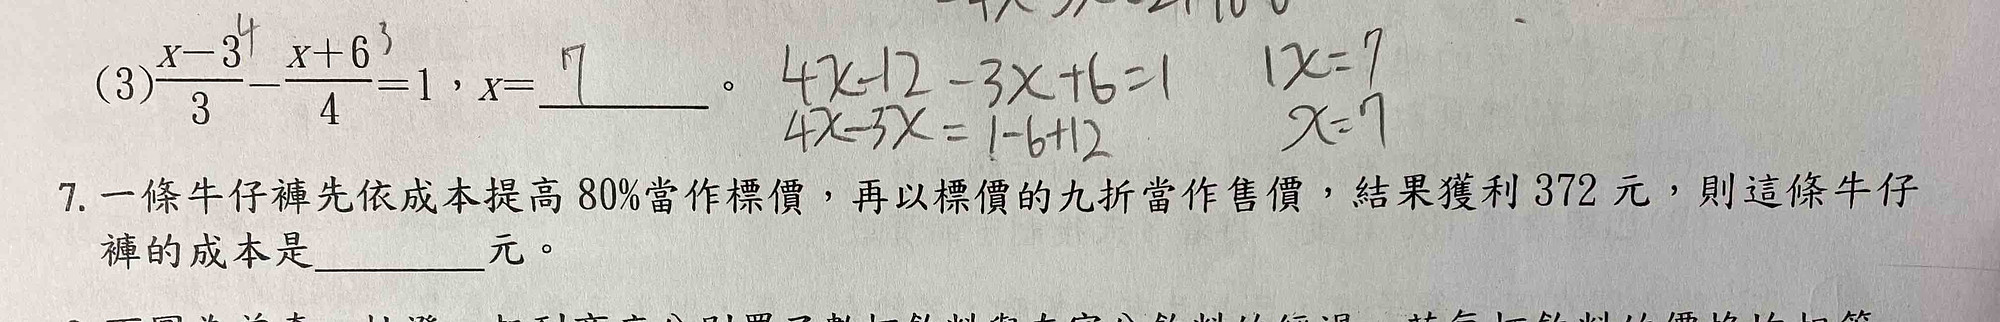 (3) x-3/3 - x+6/4 = 1，x= 7 。
4 3
4x-12-3x+6=1
4x-3x=1-6+12
1x=7
x=7
7. 一條牛仔褲先依成本提高 80%當作標價，再以標價的九折當作售價，結果獲利 372 元，則這條牛仔
褲的成本是________元。